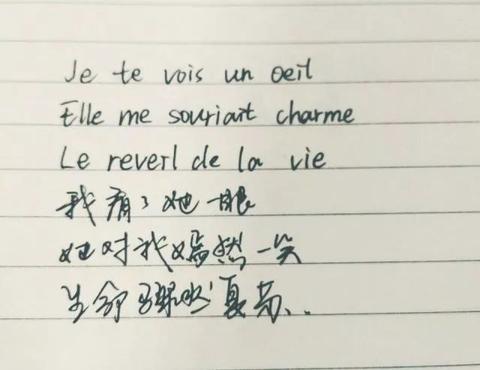 Je te vois un oeil
Elle me souriait charme
Le reverl de la vie
我看了她一眼
她对我嫣然一笑
生命骤然复苏..